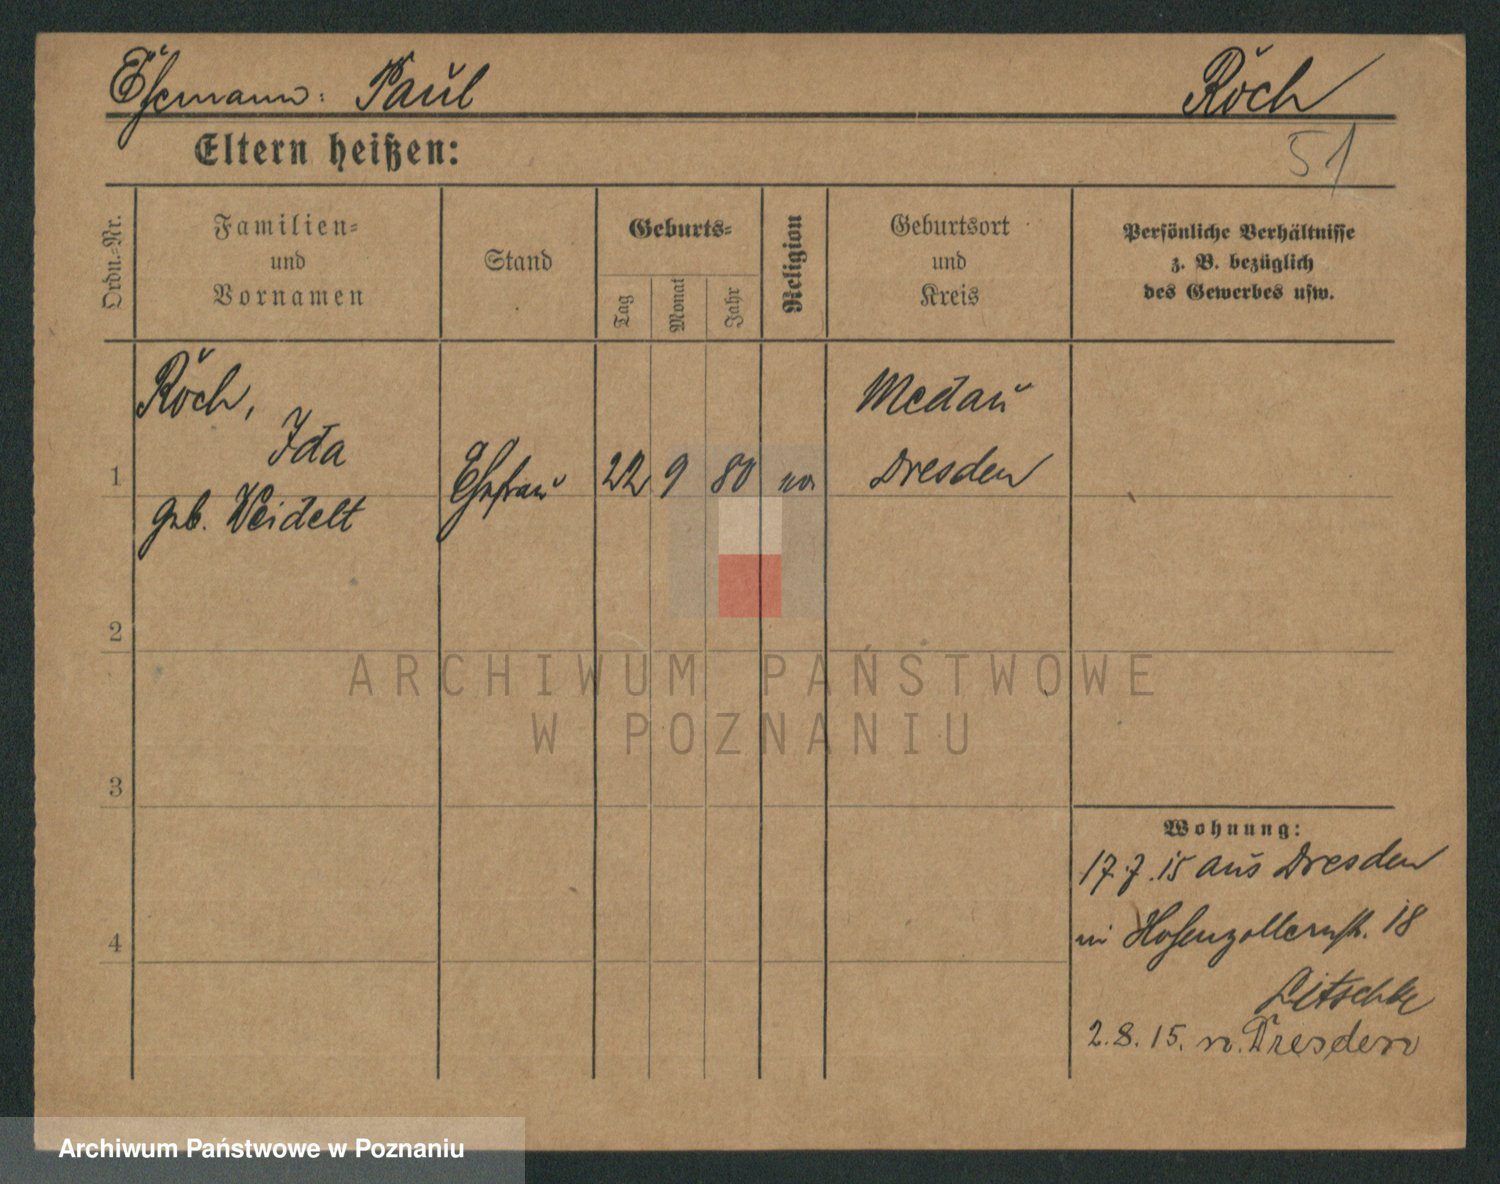 Ehemann: Paul Röch
Eltern heißen:
51
Ordn.-Nr.
Familien-
und
Vornamen
Stand
Geburts-
Tag
Monat
Jahr
Religion
Geburtsort
und
Kreis
Persönliche Verhältnisse
z. B. bezüglich
des Gewerbes usw.
Röch,
Ida
geb. Weidelt
1
Ehefrau
22 9 80
Dresden
2
3
4
Wohnung:
17.7.15 aus Dresden
in Hohenzollernstr. 18
2.8.15. n. Dresden
ARCHIWUM PAŃSTWOWE
W POZNANIU
Archiwum Państwowe w Poznaniu